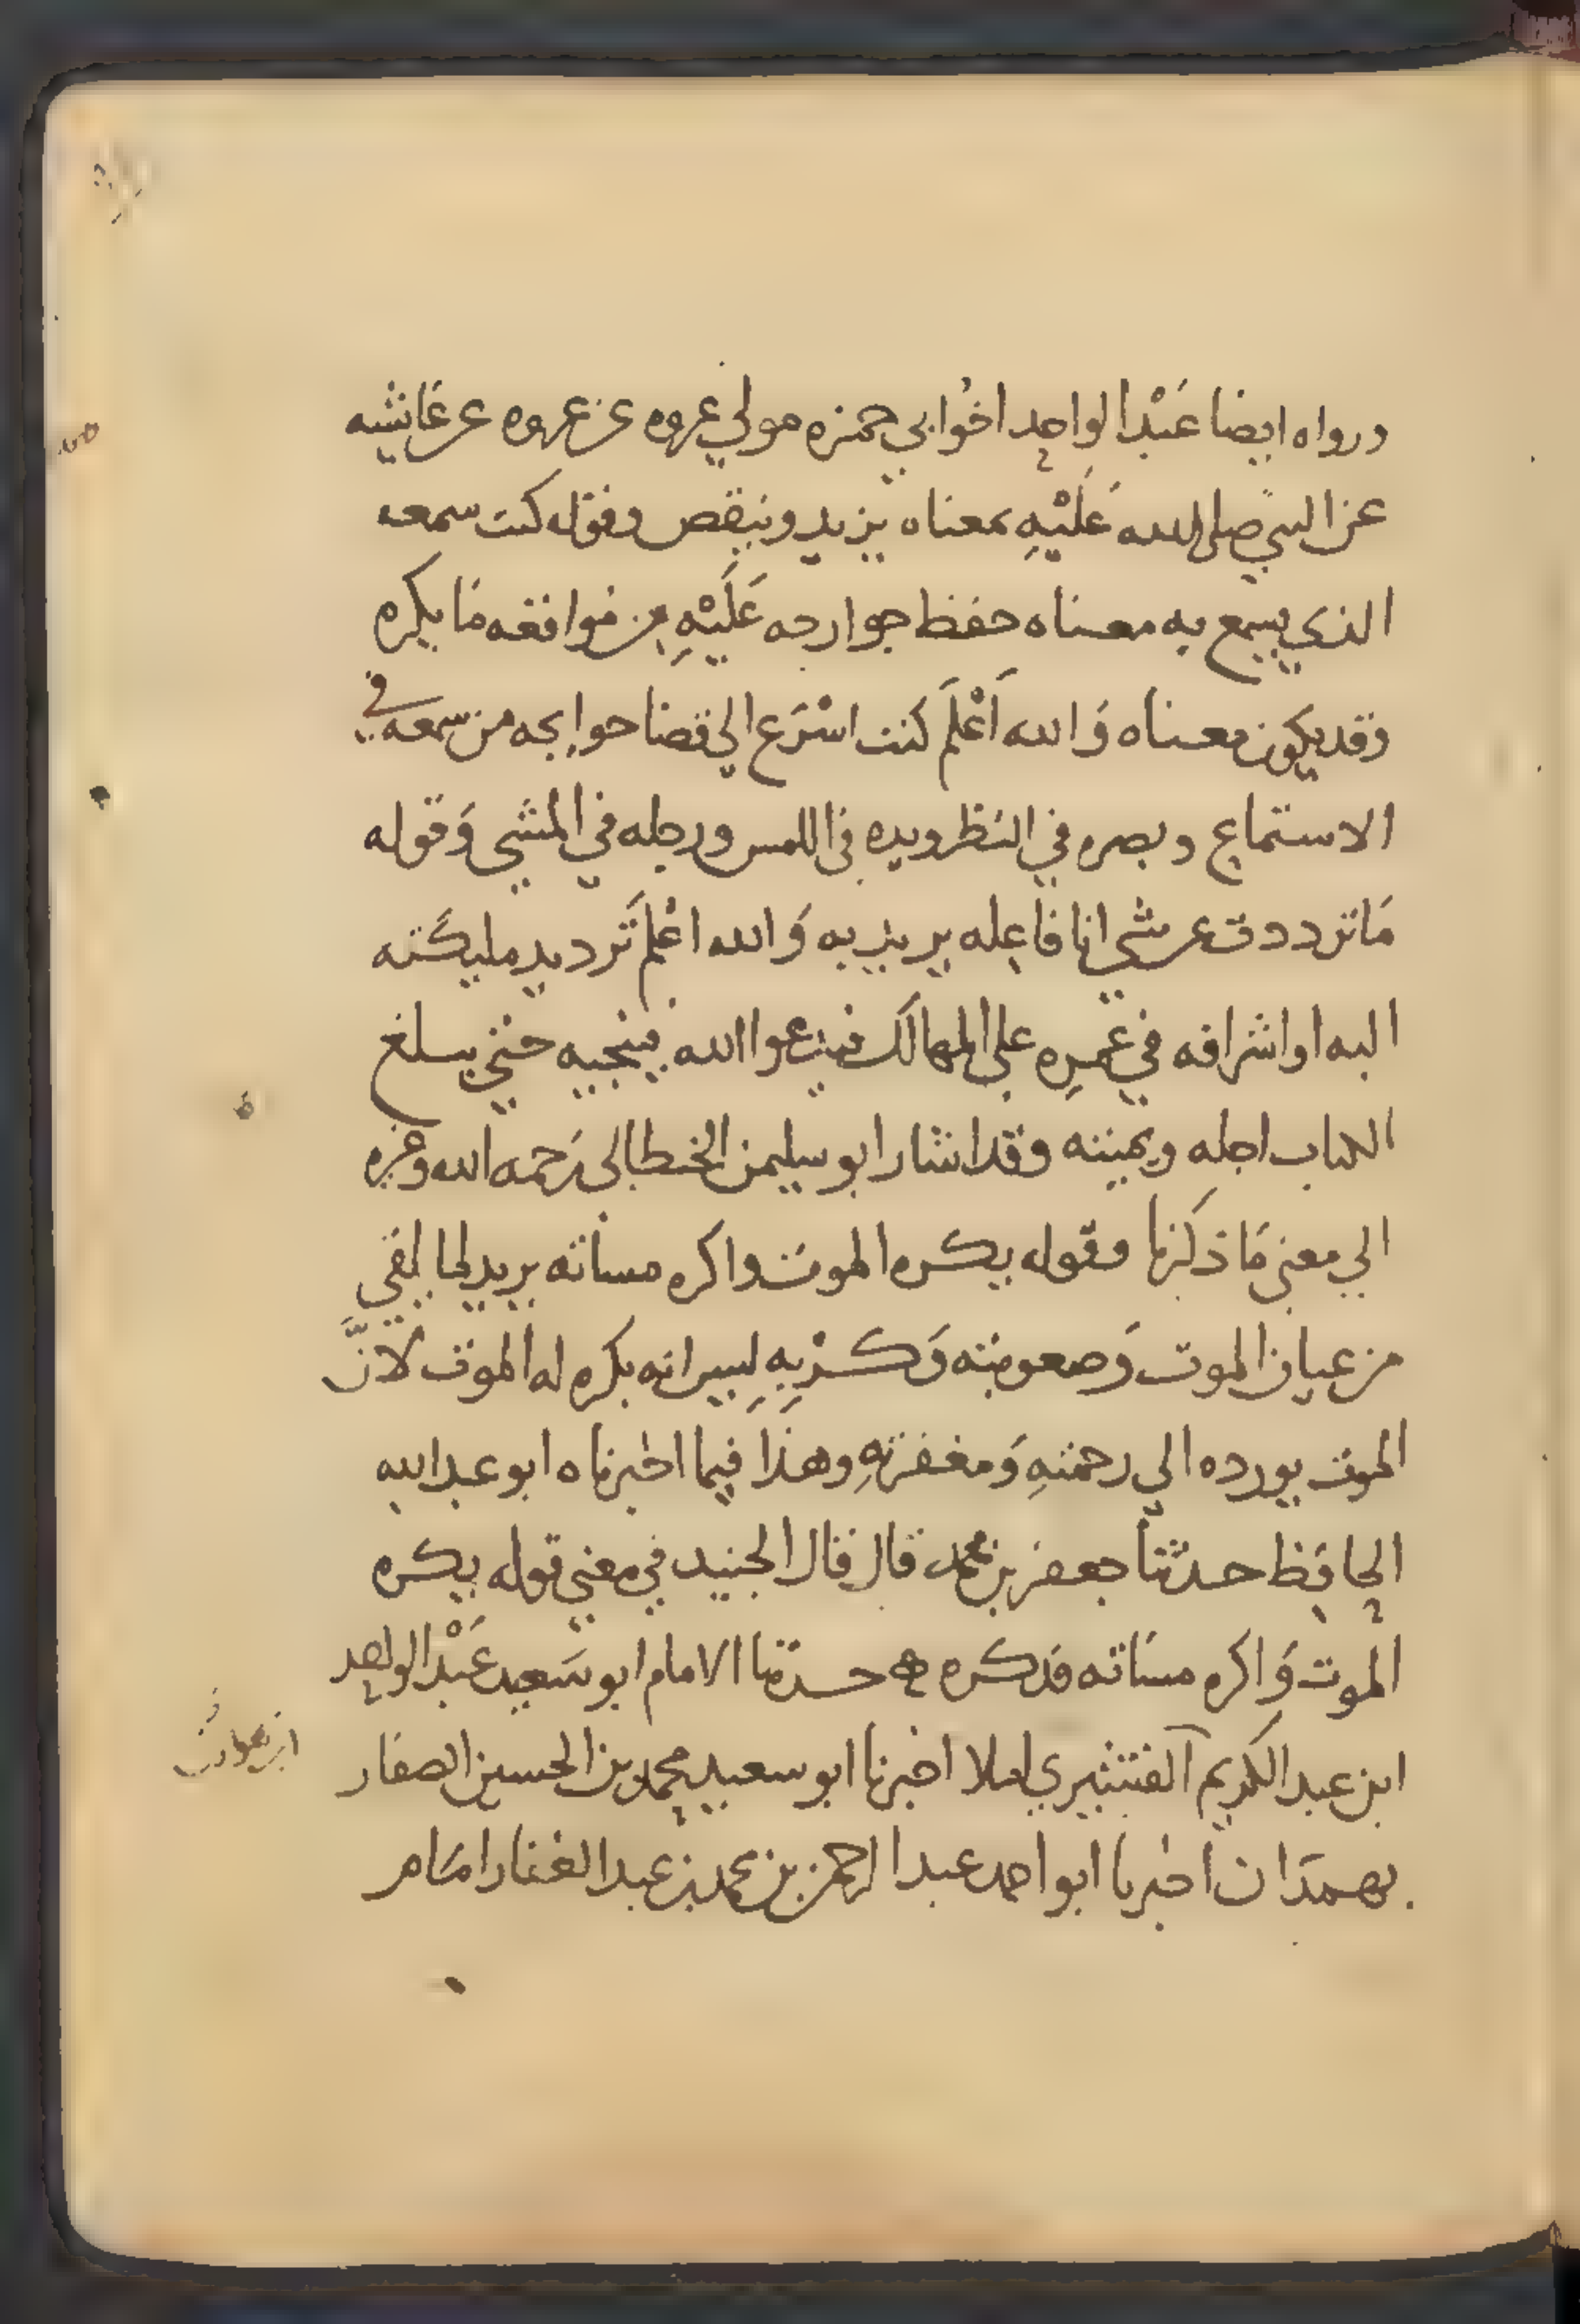 ورواه ايضا عَبْد الواحد اخُو ابي حمزه مولي عروه عن عروه عن عَائشه
عن النبي صلى الله عَلَيْهِ بمعناه يزيد وينقص وقوله كنت سمعه
الذي يسمع به معناه حفظ جوارحه عَلَيْهِ مِن مُوافقه مَا يكره
وقد يكون معناه وَالله اَعْلَم كنت اسْرَع الي قضا حوايجه من سمعه في
الاستماع وبصره في النظر ويده في اللمس ورجله في المشي وَقوله
مَا ترددت عن شي انا فاعله يريد به وَالله اعْلم تَرديد مليكته
اليه او اشرافه في عمرِه على المهالك فيدعوا الله فينجيه حتي يبلغ
الكتاب اجله ويميته وقد اشار ابو سليمن الخطابي رَحمه الله وغيره
الي معني مَا ذكَرنا وقوله يكره الموت واكره مساته يريد لما يلقي
من عيان الموت وَصعوبته وَكرْبِهِ ليس انه يكره له الموت لانَّ
الموت يورده الي رحمتهِ وَمغفرتهِ وهذَا فيما اخبرناه ابو عبد الله
الحافِظ حدثنا جعفر بن محمد قال قال الجنيد في معني قوله يكره
الموت وَاكره مسَاته فذكره ه حدثنا الامام ابو سَعيد عَبْد الواحد
ابن عبد الكريم القشيري املا اخبرنا ابو سعيد محمد بن الحسين الصفار
بهمذَان اخبرنا ابو احمد عبد الرحمن بن محمد بن عبد الغفار امَام